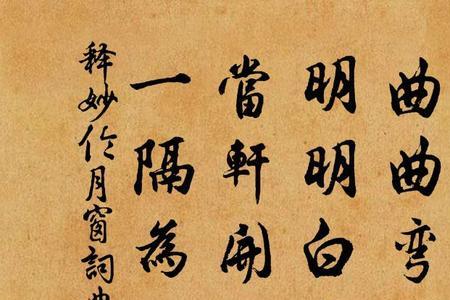 曲曲弯
明明白
當軒開
一隔為
释妙伦月窗詞